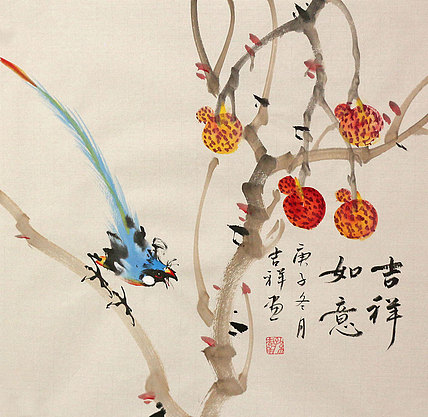 吉祥
如意
庚子冬月
吉祥画